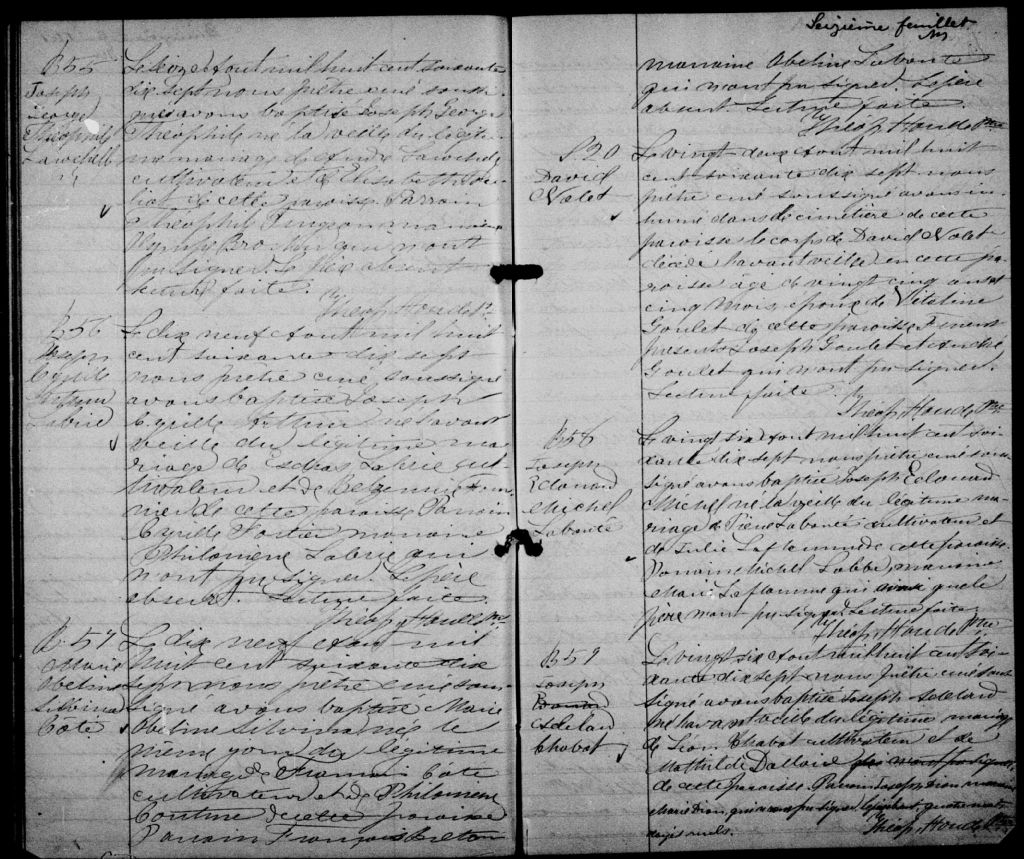 B 55
Joseph
George
Théophile
Larochelle
Le seize Aout mil huit cent soixante
dix sept nous prêtre curé soussi
gné avons baptisé Joseph George
Théophile né la veille du légiti
me mariage de
cultivateur et de Elisabeth
de cette paroisse Parrain
Théophile Turgeon marraine
qui n'ont
pu signer. Le père absent
Lecture faite.
Théop. Houde Ptre
B 56
Joseph
Cyrille
Labrie
Le dix neuf Aout mil huit
cent soixante dix sept
nous prêtre curé soussigné
avons baptisé Joseph
Cyrille né l'avant
veille du légitime ma
riage de Esdras Labrie cul
tivateur et de
de cette paroisse Parrain
Cyrille Fortier marraine
Philomène Labrie qui
n'ont pu signer. Le père
absent Lecture faite.
Théop. Houde Ptre
B. 57
Marie
Obeline
Silvina
Côte
Le dix neuf Aout mil
huit cent soixante dix
sept nous prêtre curé sous
signé avons baptisé Marie
Obeline Silvina née le
même jour du légitime
mariage de François Côte
cultivateur et de Philomène
Couture de cette paroisse
Parrain François
Seizième feuillet
marraine Obeline Labonté
qui n'ont pu signer. Le père
absent Lecture faite.
Théop. Houde Ptre
S 20
David
Nolet
Le vingt deux Aout mil huit
cent soixante dix sept nous
prêtre curé soussigné avons in
humé dans le cimetière de cette
paroisse le corps de David Nolet
décédé l'avant veille en cette pa
roisse âgé de vingt cinq ans et
cinq mois époux de Vitaline
Goulet de cette paroisse. Furent
présents Joseph Goulet et André
Goulet qui n'ont pu signer.
Lecture faite.
Théop. Houde Ptre
B 58
Joseph
Edouard
Michel
Labonté
Le vingt six Aout mil huit cent soi
xante dix sept nous prêtre curé sous
signé avons baptisé Joseph Edouard
Michel né la veille du légitime ma
riage de Pierre Labonté cultivateur et
de Julie Laflamme de cette paroisse.
Parrain Michel Labbé marraine
Marie Laflamme qui ainsi que le
père n'ont pu signer. Lecture faite
Théop. Houde Ptre
B 59
Joseph
Adelard
Chabot
Le vingt six Aout mil huit cent soi
xante dix sept nous Prêtre curé sous
signé avons baptisé Joseph Adelard
né l'avant veille du légitime mariage
de Léon Chabot cultivateur et de
Mathilde Dallaire qui n'ont pu signer
de cette paroisse Parrain Joseph Dion marraine
Marie Dion, qui n'ont pu signer quatre mots
rayés nuls.
Théop. Houde Ptre